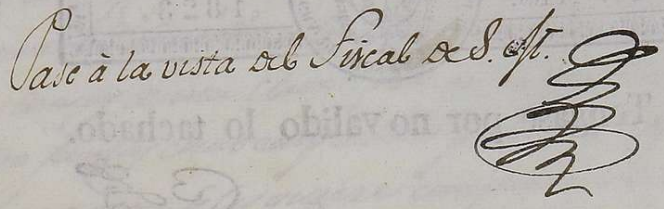 Pase à la vista del Fiscal de S. M.